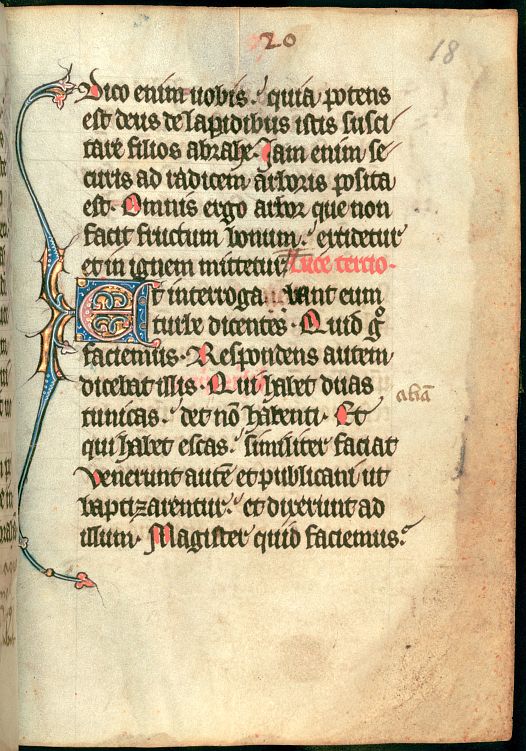 20
18
Dico enim uobis. quia potens
est deus de lapidibus istis susci
tare filios abrahe. Iam enim se
curis ad radicem arboris posita
est. Omnis ergo arbor que non
facit fructum bonum. exidetur
et in ignem mittetur. Luce tercio.
Et interroga bant eum
turbe dicentes. Quid gͦ
faciemus. Respondens autem
dicebat illis. Qui habet duas
tunicas. det nō habenti. Et
qui habet escas. similiter faciat
Venerunt autē et publicani ut
baptizarentur. et dixerunt ad
illum. Magister quid faciemus.